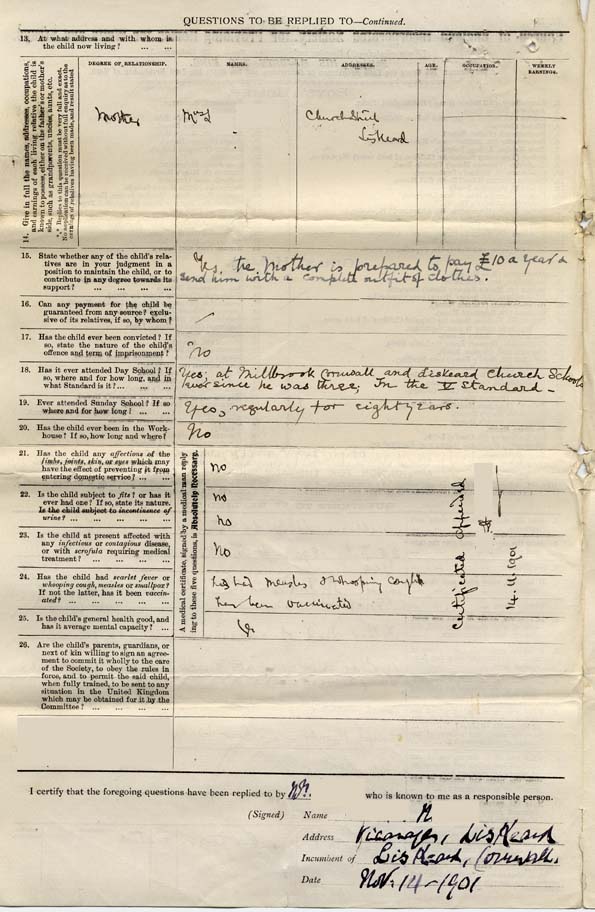 QUESTIONS TO BE REPLIED TO—Continued.
13. At what address and with whom is
the child now living? ... ...
14. Give in full the names, addresses, occupations,
and earnings of each living relative the child is
known to possess, either on the father's or mother's
side, such as grandparents, uncles, aunts, etc.
*** Replies to this question must be very full and exact.
No application can be received without full enquiry as to the
earnings of relatives having been made, and result stated
DEGREE OF RELATIONSHIP.
NAMES.
ADDRESSES.
AGE.
OCCUPATION.
WEEKLY
EARNINGS.
Mother
Church Street
Liskeard
15. State whether any of the child's rela-
tives are in your judgment in a
position to maintain the child, or to
contribute in any degree towards its
support? ... ... ... ...
Yes, the Mother is prepared to pay £10 a year &
send him with a complete outfit of clothes.
16. Can any payment for the child be
guaranteed from any source? exclu-
sive of its relatives, if so, by whom?
17. Has the child ever been convicted? If
so, state the nature of the child's
offence and term of imprisonment?
No
18. Has it ever attended Day School? If
so, where and for how long, and in
what Standard is it? ... ... ...
Yes; at Millbrook Cornwall and Liskeard Church Schools
ever since he was three; In the V Standard -
19. Ever attended Sunday School? If so
where and for how long? ... ...
Yes, regularly for eight years.
20. Has the child ever been in the Work-
house? If so, how long and where?
No
21. Has the child any affections of the
limbs, joints, skin, or eyes which may
have the effect of preventing it from
entering domestic service? ... ...
22. Is the child subject to fits? or has it
ever had one? If so, state its nature.
Is the child subject to incontinence of
urine? ... ... ... ... ...
23. Is the child at present affected with
any infectious or contagious disease,
or with scrofula requiring medical
treatment? ... ... ... ...
24. Has the child had scarlet fever or
whooping cough, measles or smallpox?
If not the latter, has it been vaccin-
ated? ... ... ... ...
25. Is the child's general health good, and
has it average mental capacity? ...
A medical certificate, signed by a medical man reply-
ing to these five questions, is Absolutely Necessary.
no
no
no
No
has had Measles & whooping cough
has been vaccinated
Certificated
14.11.1901
26. Are the child's parents, guardians, or
next of kin willing to sign an agree-
ment to commit it wholly to the care
of the Society, to obey the rules in
force, and to permit the said child,
when fully trained, to be sent to any
situation in the United Kingdom
which may be obtained for it by the
Committee? ... ... ... ...
I certify that the foregoing questions have been replied to by
who is known to me as a responsible person.
(Signed) Name
Address Vicarage, Liskeard
Incumbent of Liskeard, Cornwall.
Date Nov. 14 - 1901